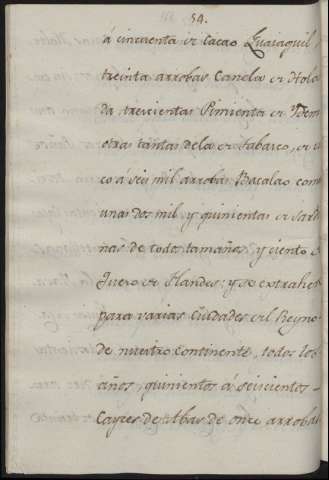 54.
á cincuenta de Cacao Guaiaquil
treinta arrobas Canela de Hola
da, trescientas Pimienta de Ydem
otras tantas dela de Tabasco, de
có á seis mil arrobas Bacalao com
unas dos mil y quinientas de sardi
ñas de todos tamaños, y ciento
Queso de Flandes: y se extrahen
para varias Ciudades del Reyno
de nuestro Continente, todos los
años, quinientos á seiscientos
Cayzes de Abas de once arrobas